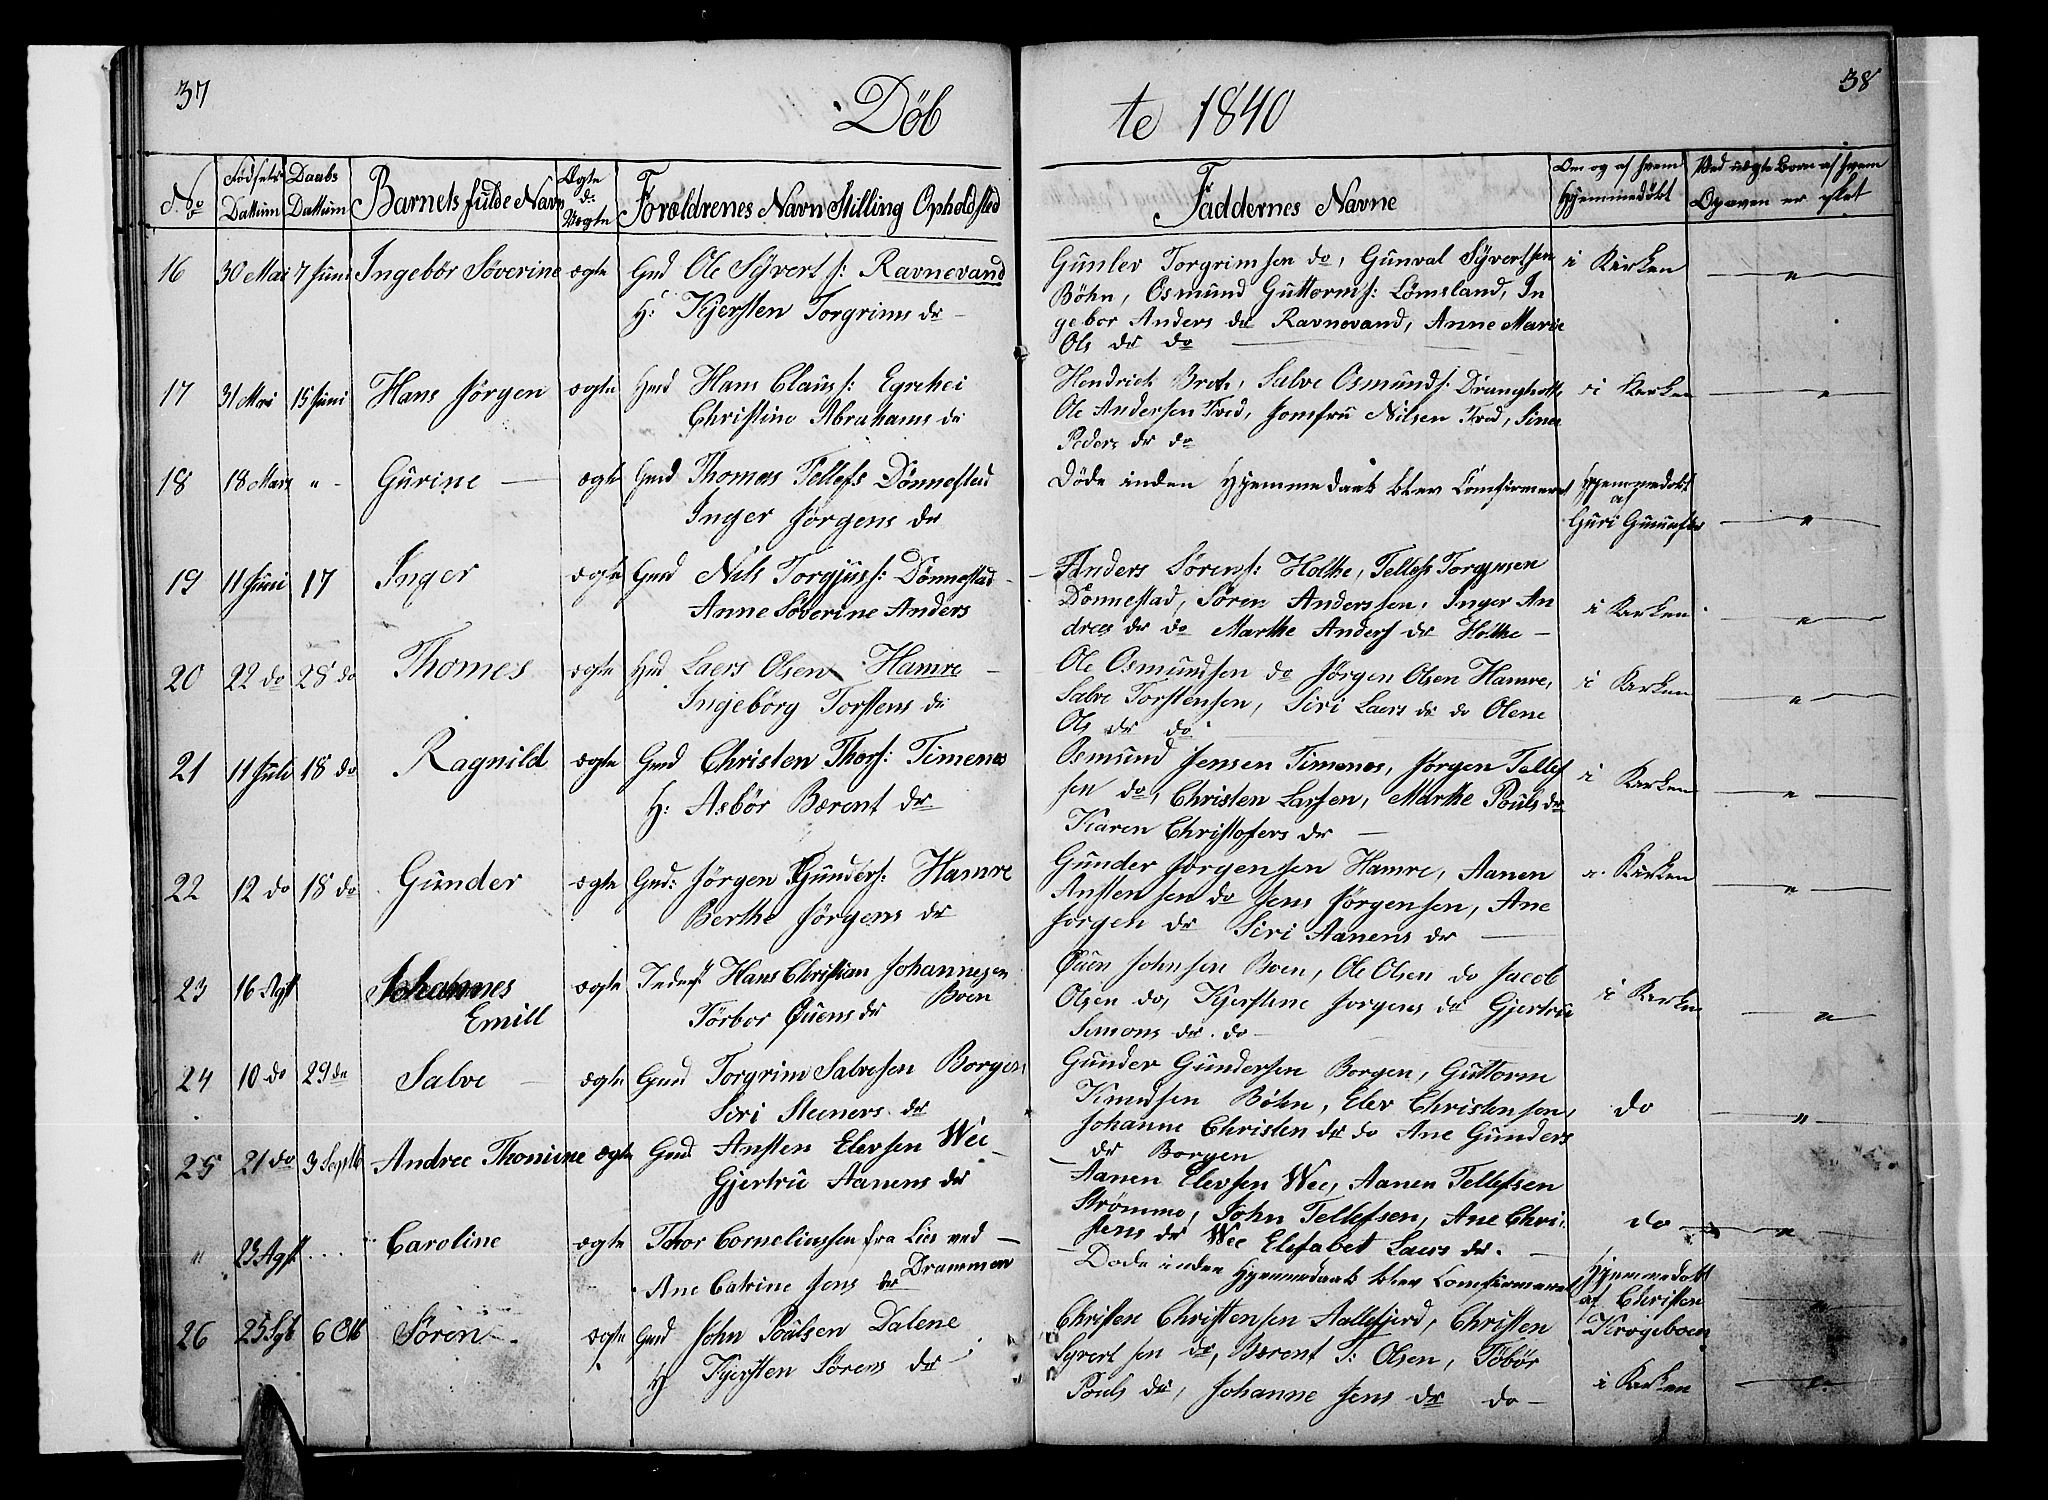 37
38
Döb
te 1840
No
Fødsels Dattum
Daabs Dattum
Barnets fulde Navn
Ægte el: Uægte
Forældrenes Navn Stilling Opholdsted
Faddernes Navne
Om og af hvem Hjemmedøbt
Ved uægte Børn af hvem Opgaven er sket
16 30 Mai 7 Juni Ingebör Söverine ægte Gmd Ole Syvert s: Ravnevand
H: Kjersten Torgrims dr
Gunlev Torgrimsen do, Gunval Syvertsen
Böhn, Osmund Guttorms: Lömsland, In
gebor Anders dr Ravnevand, Anne Marie
Ols dr do
i Kirken
17 31 Mai 15 Juni Hans Jörgen ægte Hmd Hans Claus s: Egrehei
Christine Abrahams dr
Hendrich Broth, Salve Osmunds: Drangholt,
Ole Andersen Tved, Jomfru Nilsen Tved, Sine
Peders dr do
i Kirken
18 18 Mars " - Gurine ægte Gmd Thomas Tellefs Dönnestad
Inger Jörgens dr
Döde inden Hjemmedaab blev Comfirmeret
Hjemmedöbt af Guri
19 11 Juni 17 Inger ægte Gmd Nils Torgjuss: Dönnestad
Anne Söverine Anders
Anders Sörens: Holthe, Tellef Torgjusen
Dönnestad, Sören Anderssen, Inger An
dreas dr do Marthe Anders dr Holthe
i Kirken
20 22 do 28 do Thomes ægte Hmd Laers Olsen Hamre
Ingebörg Torstens dr
Ole Osmundsen do Jörgen Olsen Hamre,
Salve Torstensen, Siri Laers dr do Olene
Ols dr do
i Kirken
21 11 Juli 18 do Ragnild ægte Gmd Christen Thors: Timenes
H: Asbör Bærent dr
Osmund Jensen Timenes, Jörgen Tellef
sen do, Christen Larsen, Marthe Pouls dr
Karen Christofers dr
i Kirken
22 12 do 18 do Gunder ægte Gmd: Jörgen Gunders: Hamre
Berthe Jörgens dr
Gunder Jörgensen Hamre, Aanen
Anstensen do Jens Jörgensen, Ane
Jörgen dr Siri Aanens dr
i Kirken
23 16 Agt Johannes
Emill ægte Inders Hans Christian Johannesen
Boen
Törbor Ouens dr
Ouen Johnsen Boen, Ole Olsen do Jacob
Olsen do, Kjerstine Jorgens dr Gjertrue
Semons dr. do
i Kirken
24 10 do 29 do Salve ægte Gmd Torgrim Salvesen Borgen
Seri Steners dr
Gunder Gundersen Borgen, Guttorm
Knudsen Böhn, Elev Christensen,
Johanne Christen dr do Ane Gunders
dr Borgen
do
25 21 do 3 Septb Andree Thomine ægte Gmd Ansten Elevsen Wee
Gjertrue Aanens dr
Aanen Elevsen Wee, Aanen Tellefsen
Strömme, John Tellefsen, Ane Chri
stens dr Wee Elesabet Laers dr.
do
" 23 Agst Caroline ægte Thor Corneliussen fra Lier ved
Drammen
Ane Catrine Jens dr
Döde inden Hjemmedaab blev Comfirmeret
Hjemmedöbt
af Christen
Krogeboen
26 25 Sptb 6 Oktb Sören ægte Gmd John Poulsen Dalene
H Kjersten Sörens dr
Christen Christensen Aallefjerd, Christen
Syvertsen do, Bærent T: Olsen, Töbör
Pouls dr, Johanne Jens dr do
i Kirken